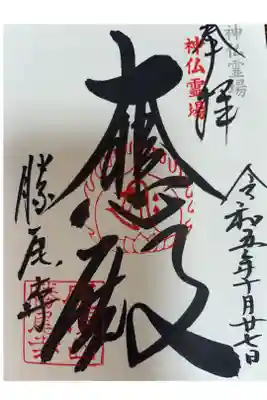 奉拝
神仏霊場
神仏霊場
令和五年十月廿七日
大悲殿
勝尾寺